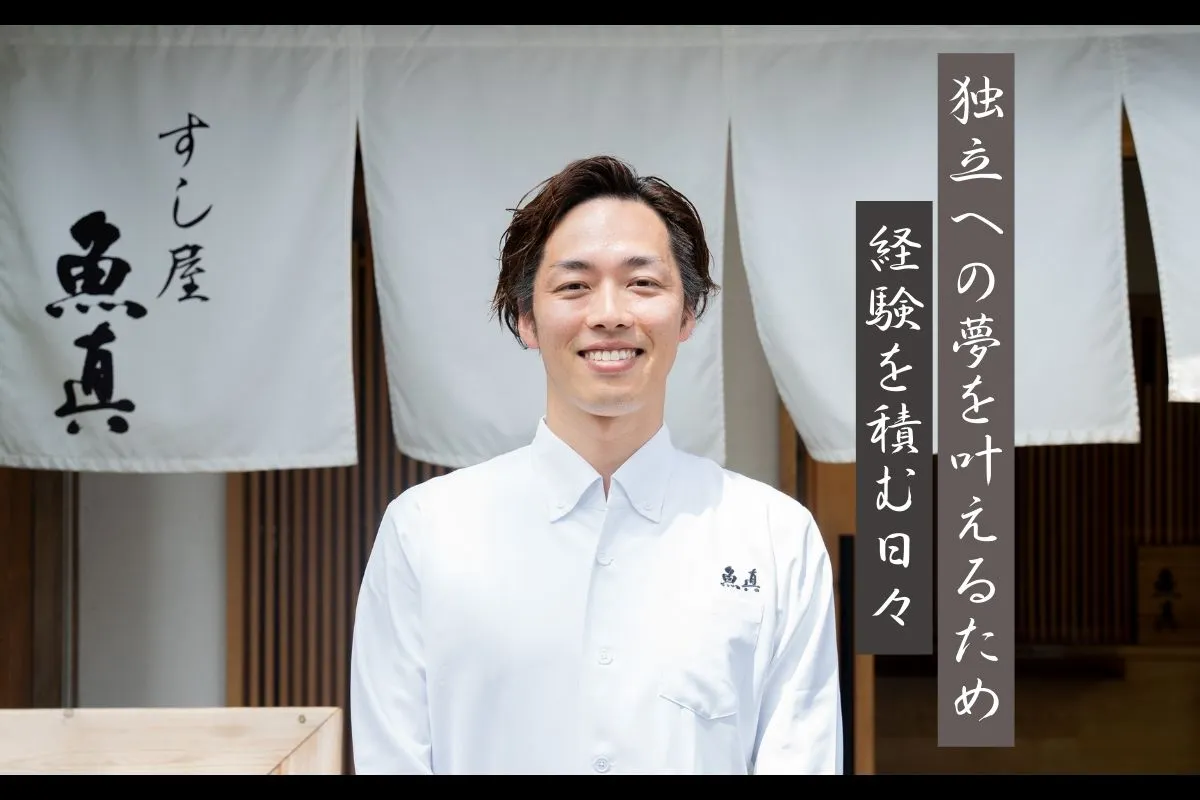 独立への夢を叶えるため
経験を積む日々
すし屋
魚真
魚真